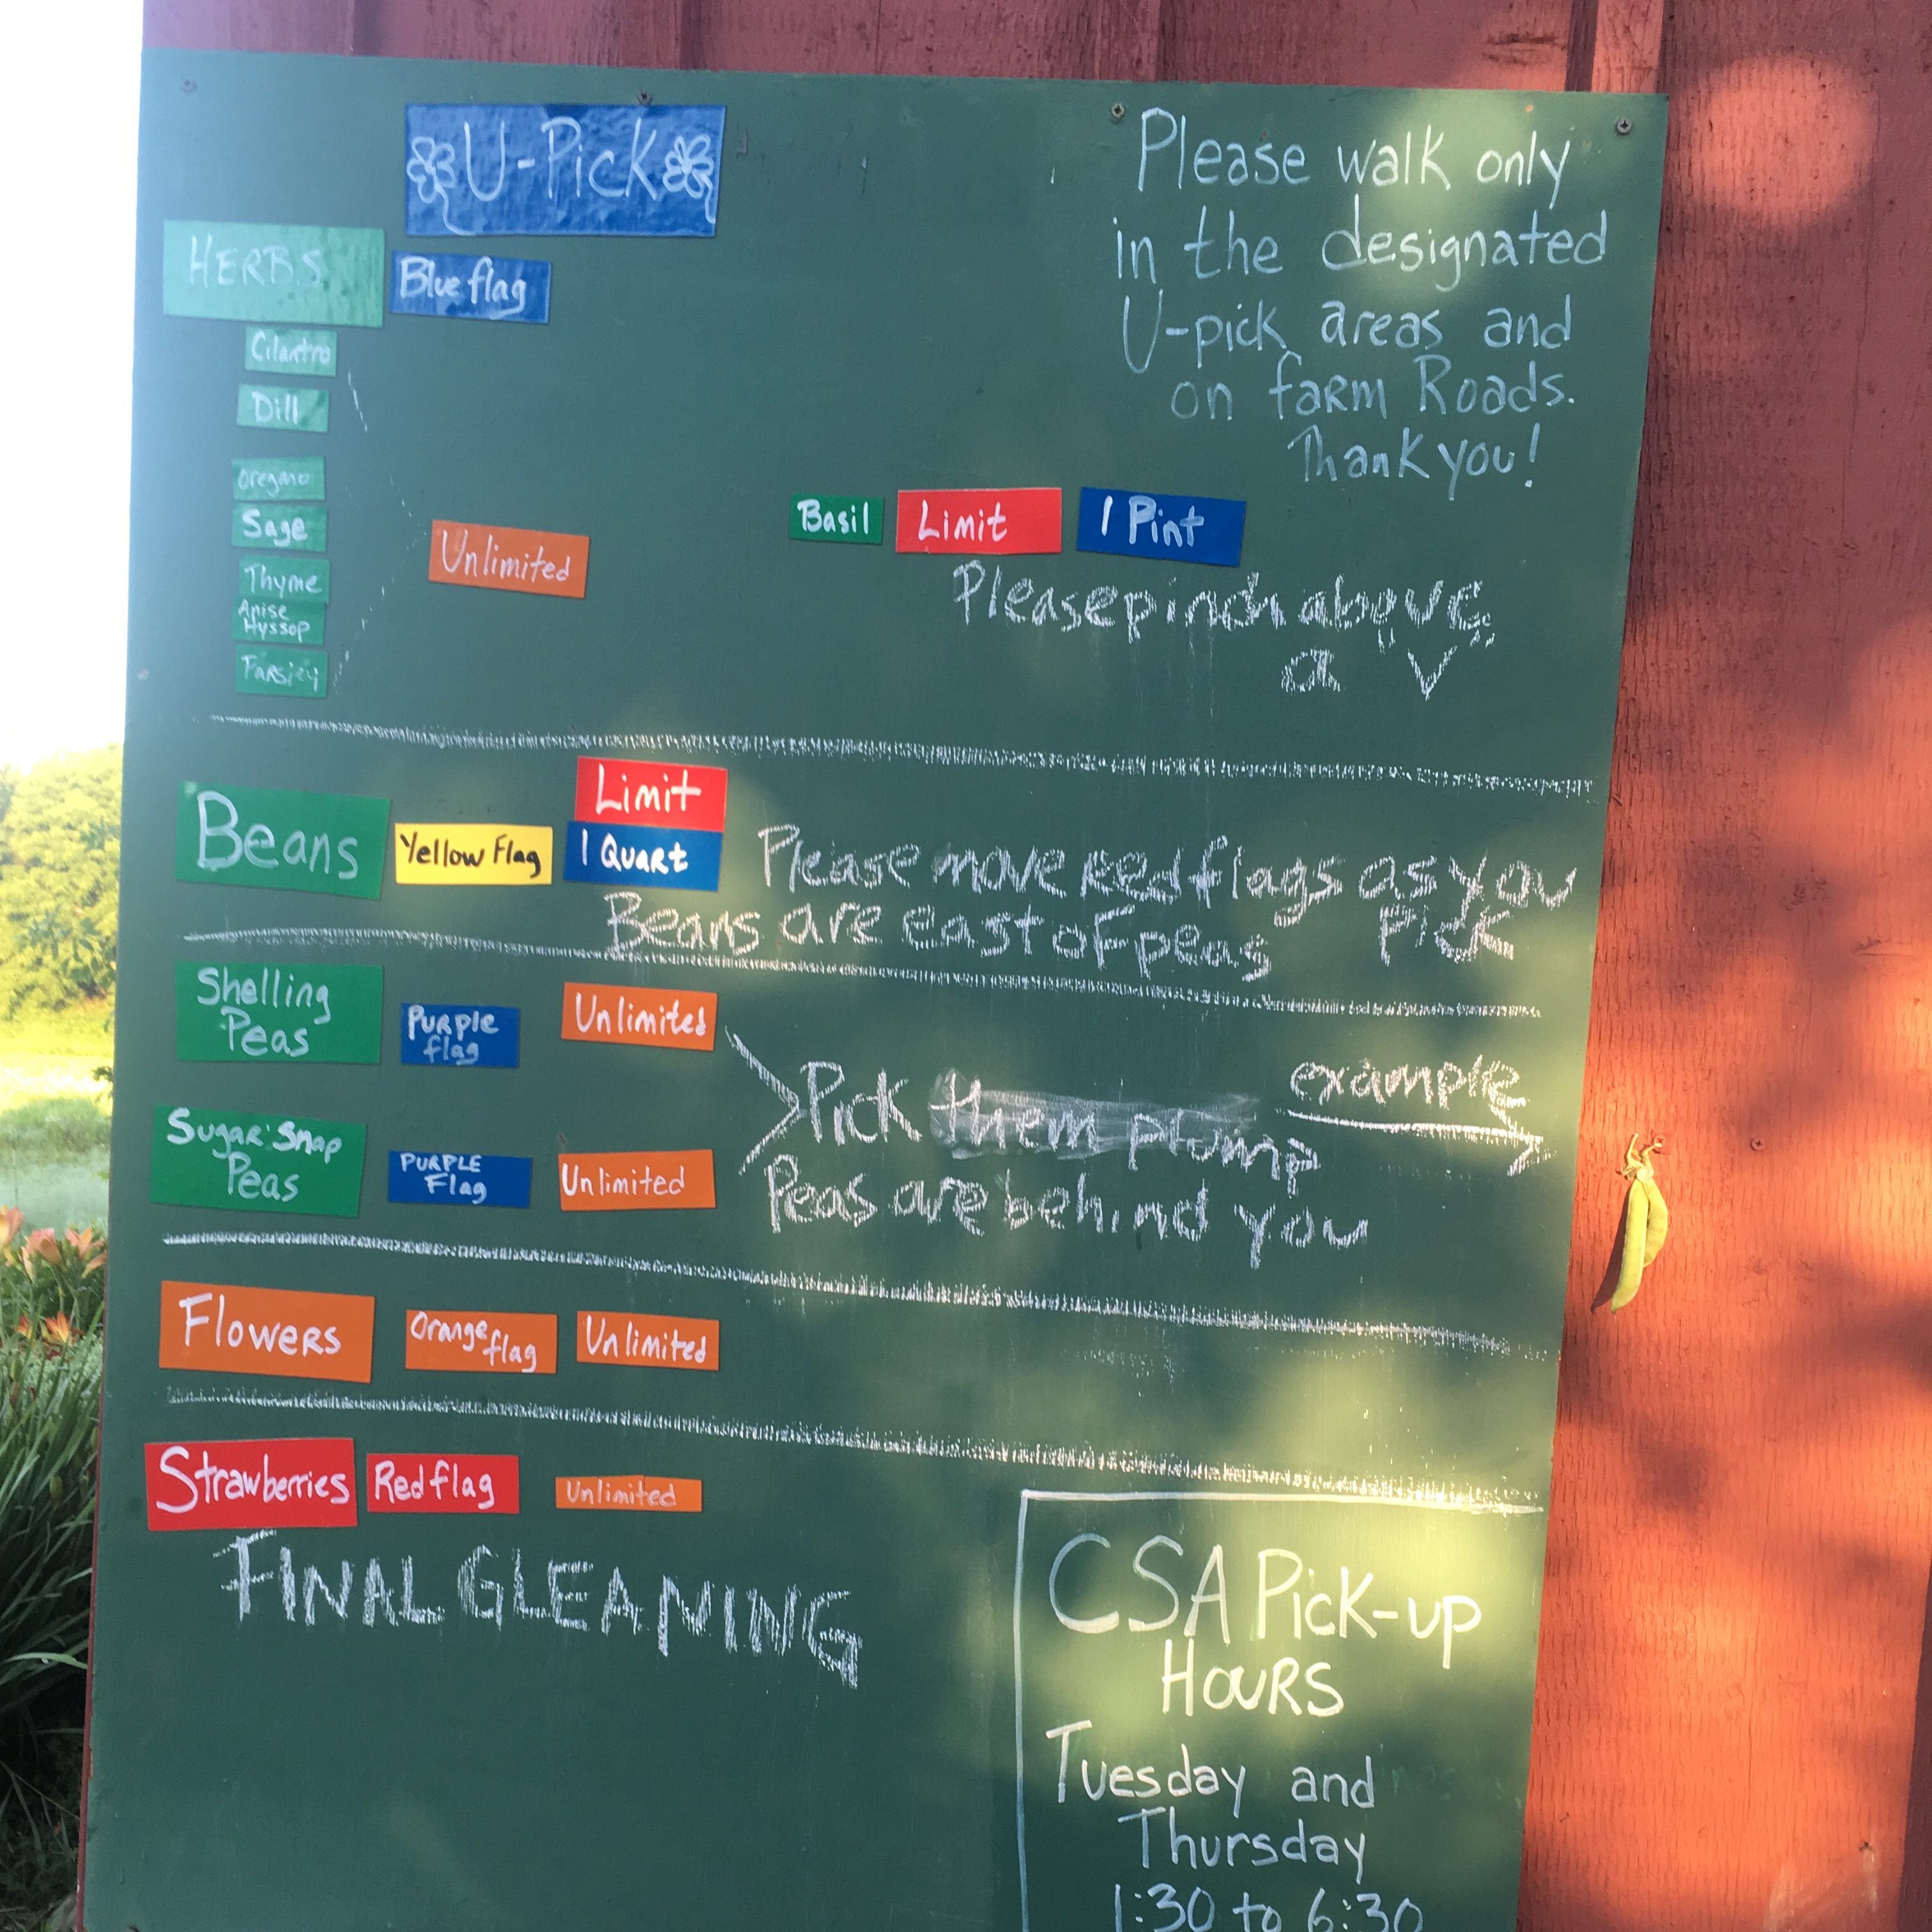 U-Pick
Please walk only
in the designated
U-pick areas and
on farm Roads.
Thank you!
HERBS
Blue flag
Cilantro
Dill
Oregano
Sage
Thyme
Anise
Hyssop
Parsley
Unlimited
Basil Limit 1 Pint
Please pinch above
a "V"
Beans Yellow Flag Limit
1 Quart
Please move Red flags as you
Pick
Beans are east of peas
Shelling
Peas
Purple
flag
Unlimited
Sugar Snap
Peas
PURPLE
Flag
Unlimited
Pick them plump
example
Peas are behind you
Flowers
Orange
flag
Unlimited
Strawberries Red flag Unlimited
FINAL GLEANING
CSA Pick-up
HOURS
Tuesday and
Thursday
1:30 to 6:30